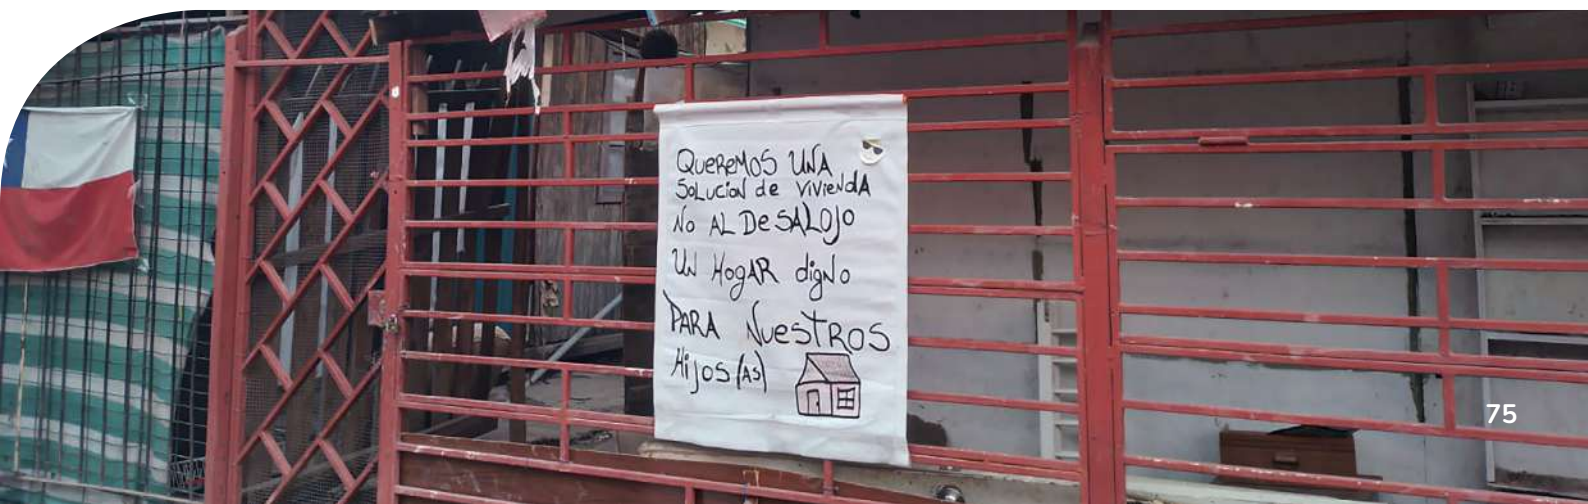 QUEREMOS UNA
SOLUCION de VIVIENdA
No AL DeSALOJO
UN HogAR digNo
PARA NUeSTROS
HijOS(AS)
75